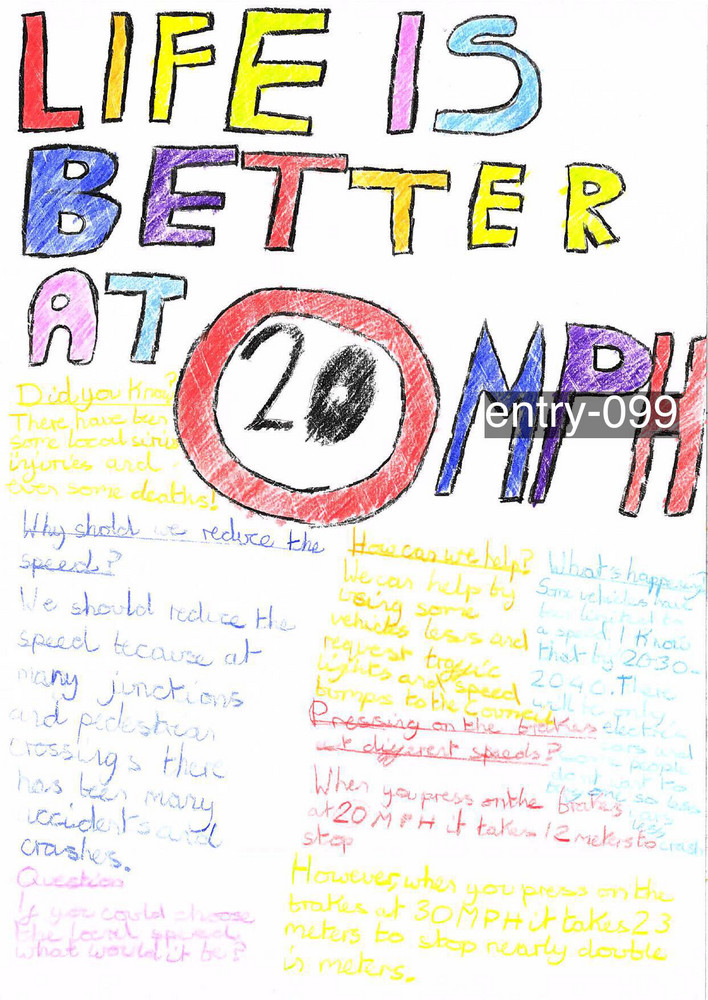 LIFE IS
BETTER
AT 20 MPH
entry-099
Did you Know?
There have been
some local
injuries and
even some deaths!
Why shold we reduce the
speed?
We should reduce the
speed because at
many junctions
and pidestrean
crossings there
has been many
accidents and
crashes.
Question
If you could choose
the local speed,
what would it be?
How can we help?
We can help by
using some
vehicles less and
request traffic
lights and speed
bumps to the Council
What's happening?
Some vehicles have
been limited to
a speed I Know
that by 2030-
2040. There
will be only
electric
cars and
some people
do n't want to
buy one so less
cars
less
crash
Pressing on the brakes
at different speeds?
When you press on the brakes
at 20 MPH it takes 12 meters to
stop
However, when you press on the
brakes at 30 MPH it takes 23
meters to stop nearly double
in meters.